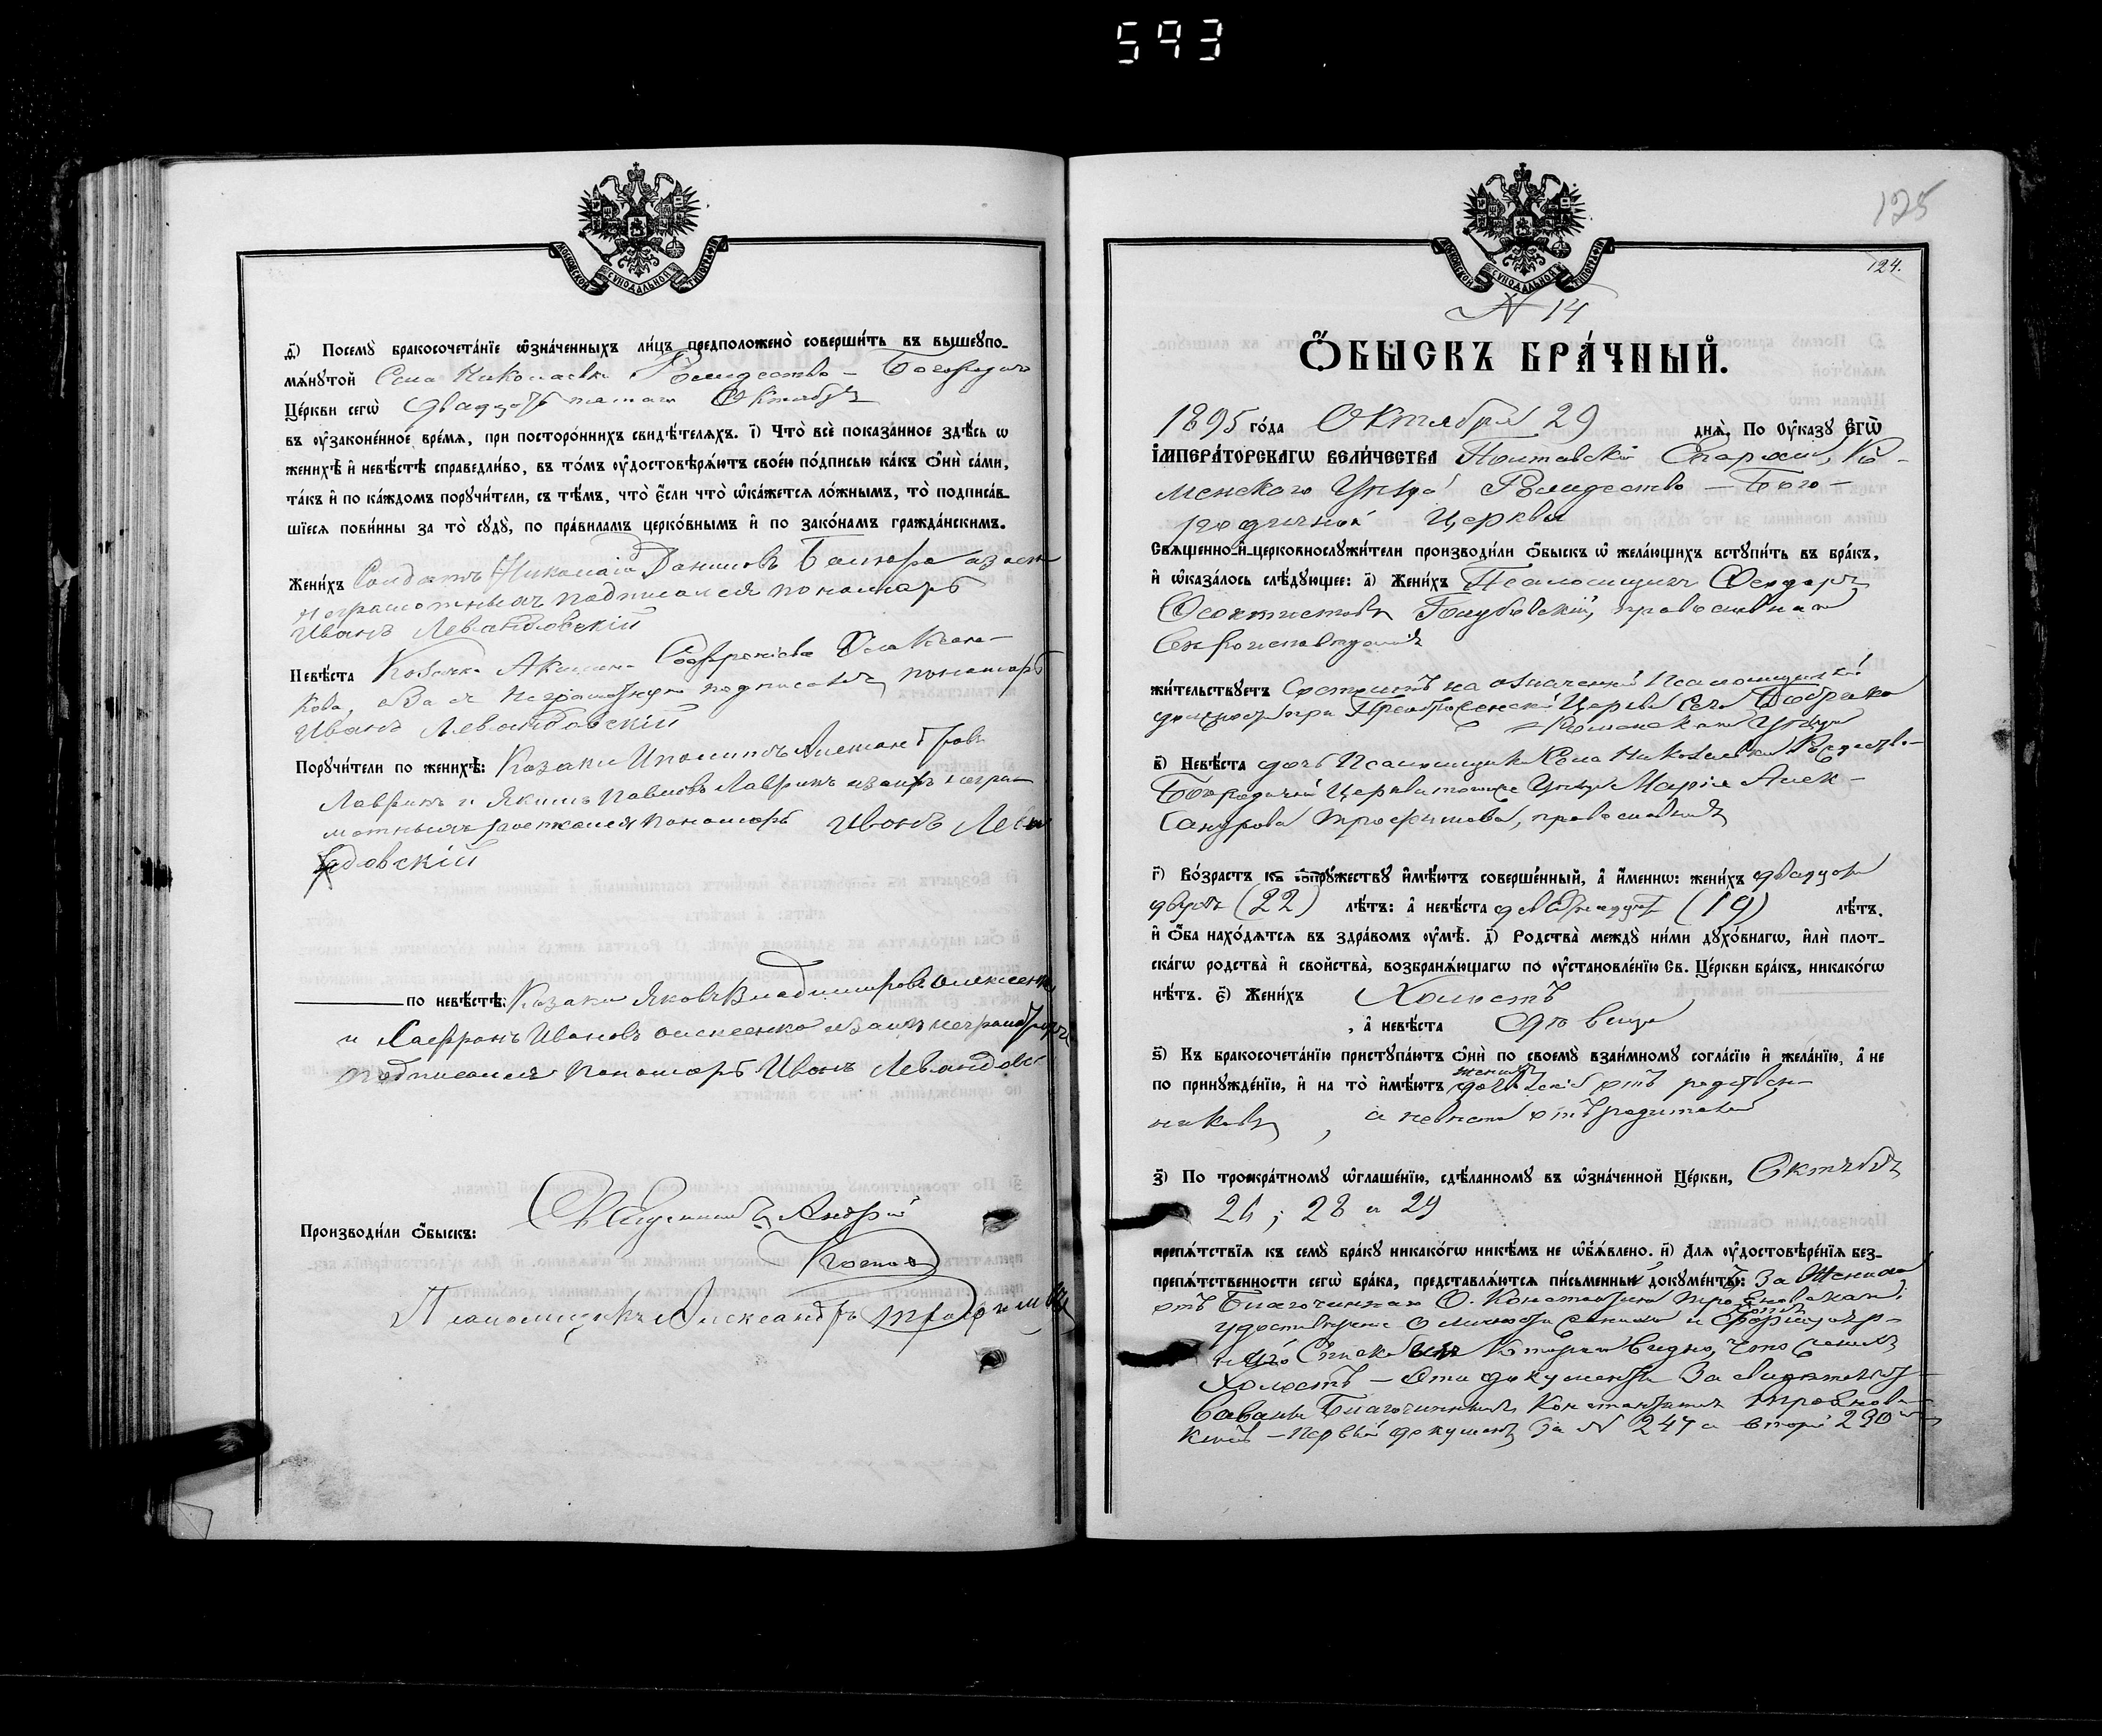 593
МОСКОВСКОЙ СѴНОДАЛЬНОЙ ТИПОГРАФІИ
Посемꙋ̀ бракосочета́нїе ѡ҆зна́ченныхъ ли́цъ предположено̀ соверши́ть въ вышеꙋпо-
мѧ́нꙋтой Села Николаевки Рождество - Богородич
Це́ркви сегѡ̀ двадцать Октября
въ ᲂу҆законе́нное вре́мѧ, при посторо́ннихъ свидѣ́телѧхъ. і҃) Что̀ всѐ пока́занное здѣ́сь ѡ
женихѣ̀ и҆ невѣ́стѣ справедли́во, въ то́мъ ᲂу҆достовѣрѧ́ютъ свое́ю по́дписью ка́къ ѻ҆нѝ са́ми,
та́къ и҆ по ка́ждомъ порꙋчи́тели, съ тѣ́мъ, что̀ є҆́сли что̀ ѡ҆ка́жетсѧ ло́жнымъ, то̀ подписа́в-
шїесѧ пови́нны за то̀ сꙋдꙋ̀, по пра́виламъ церко́внымъ и҆ по зако́намъ гражда́нскимъ.
Жени́хъ Солдатъ Николай Даниловъ а за его
неграмотныхъ подписался пономарь
Иванъ Левандовскій
Невѣ́ста Козачка Акилина Софроніева Олексѣен-
кова, а за неграмотную подписалъ пономарь
Иванъ Левандовскій
Порꙋчи́тели по женихѣ̀: Козаки Александровъ
Лавринъ и Якимъ Павловъ Лавринъ а за нихъ неграм
мотныхъ росписался пономарь Иванъ Лева
ндовскій
по невѣ́стѣ: Козаки Яковъ Владиміровъ Олексеенко
и Сафронъ Ивановъ Олексеенко а за нихъ неграмотныхъ
подписался пономарь Иванъ Левандовс
Производи́ли ѻ҆́быскъ: Священникъ Андрей
Псаломщикъ Александръ Трофимовъ
125
124.
МОСКОВСКОЙ СѴНОДАЛЬНОЙ ТИПОГРАФІИ
N 14
Ѻ҆́БЫСКЪ БРА́ЧНЫЙ.
1895 го́да Октября 29 днѧ̀. По Оу҆ка́зꙋ Є҆ГѠ̀
І҆МПЕРА́ТОРСКАГѠ ВЕЛИ́ЧЕСТВА Полтавской Епархіи, Ро-
менскаго Уѣзда Рождество - Бого-
родичной Церкви
Свѧще́нно-и҆-церковнослꙋжи́тели производи́ли ѻ҆́быскъ ѡ҆ жела́ющихъ встꙋпи́ть въ бра́къ,
и҆ ѡ҆каза́лось слѣ́дꙋющее: а҃) Жени́хъ Псаломщикъ Ѳеодоръ
Ѳеоктистовъ Голубовскій, православнаго
вероисповѣданія
жи́тельствꙋетъ Состоитъ на означенной Псаломщицкой
должности при Преображенской Церкви Села
Роменскаго Уѣзда
в҃) Невѣ́ста дочь Псаломщика Села Николаевки Рождество-
Богородичной Церкви того же Уѣзда Марія Алек-
сандрова Трофимова, православная
г҃) Во́зрастъ къ сꙋпрꙋ́жествꙋ и҆мѣ́ютъ соверше́нный, а҆ и҆́меннѡ: жени́хъ двадцати
двухъ (22) лѣ́тъ: а҆ невѣ́ста девятнадцать (19) лѣ́тъ.
и҆ ѻ҆́ба нахо́дѧтсѧ въ здра́вомъ ᲂу҆мѣ̀. д҃) Родства̀ междꙋ̀ ни́ми дꙋхо́внагѡ, и҆лѝ плот-
ска́гѡ родства̀ и҆ сво́йства̀, возбранѧ́ющагѡ по ᲂу҆становле́нїю Св. Це́ркви бра́къ, никако́гѡ
нѣ́тъ. є҃) Жени́хъ Холостъ
, а҆ невѣ́ста дѣвица
ѕ҃) Къ бракосочета́нїю пристꙋпа́ютъ ѻ҆нѝ по своемꙋ̀ взаи́мномꙋ согла́сїю и҆ жела́нїю, а҆ не
по принꙋжде́нїю, и҆ на то̀ и҆мѣ́ютъ женихъ отъ родствен-
никовъ, а невѣста отъ родителей
з҃) По трокра́тномꙋ ѡ҆глаше́нїю, сдѣ́ланномꙋ въ ѡ҆зна́ченной Це́ркви, Октября
26; 28 и 29
препѧ́тствїѧ къ семꙋ̀ бра́кꙋ никако́гѡ никѣ́мъ не ѡ҆б̾ѧ́влено. и҃) Длѧ ᲂу҆достовѣре́нїѧ без-
препѧ́тственности сегѡ̀ бра́ка, представлѧ́ютсѧ пи́сьменны докꙋме́нты: За Жениха
отъ Благочиннаго О. Константина
удостовѣреніе о личности жениха и копія формуляр-
наго Списка изъ котораго видно, что женихъ
Холостъ - Эти документы засвидѣтельст-
вованы Благочиннымъ Константиномъ
- первый документъ за N 247 а второй 230